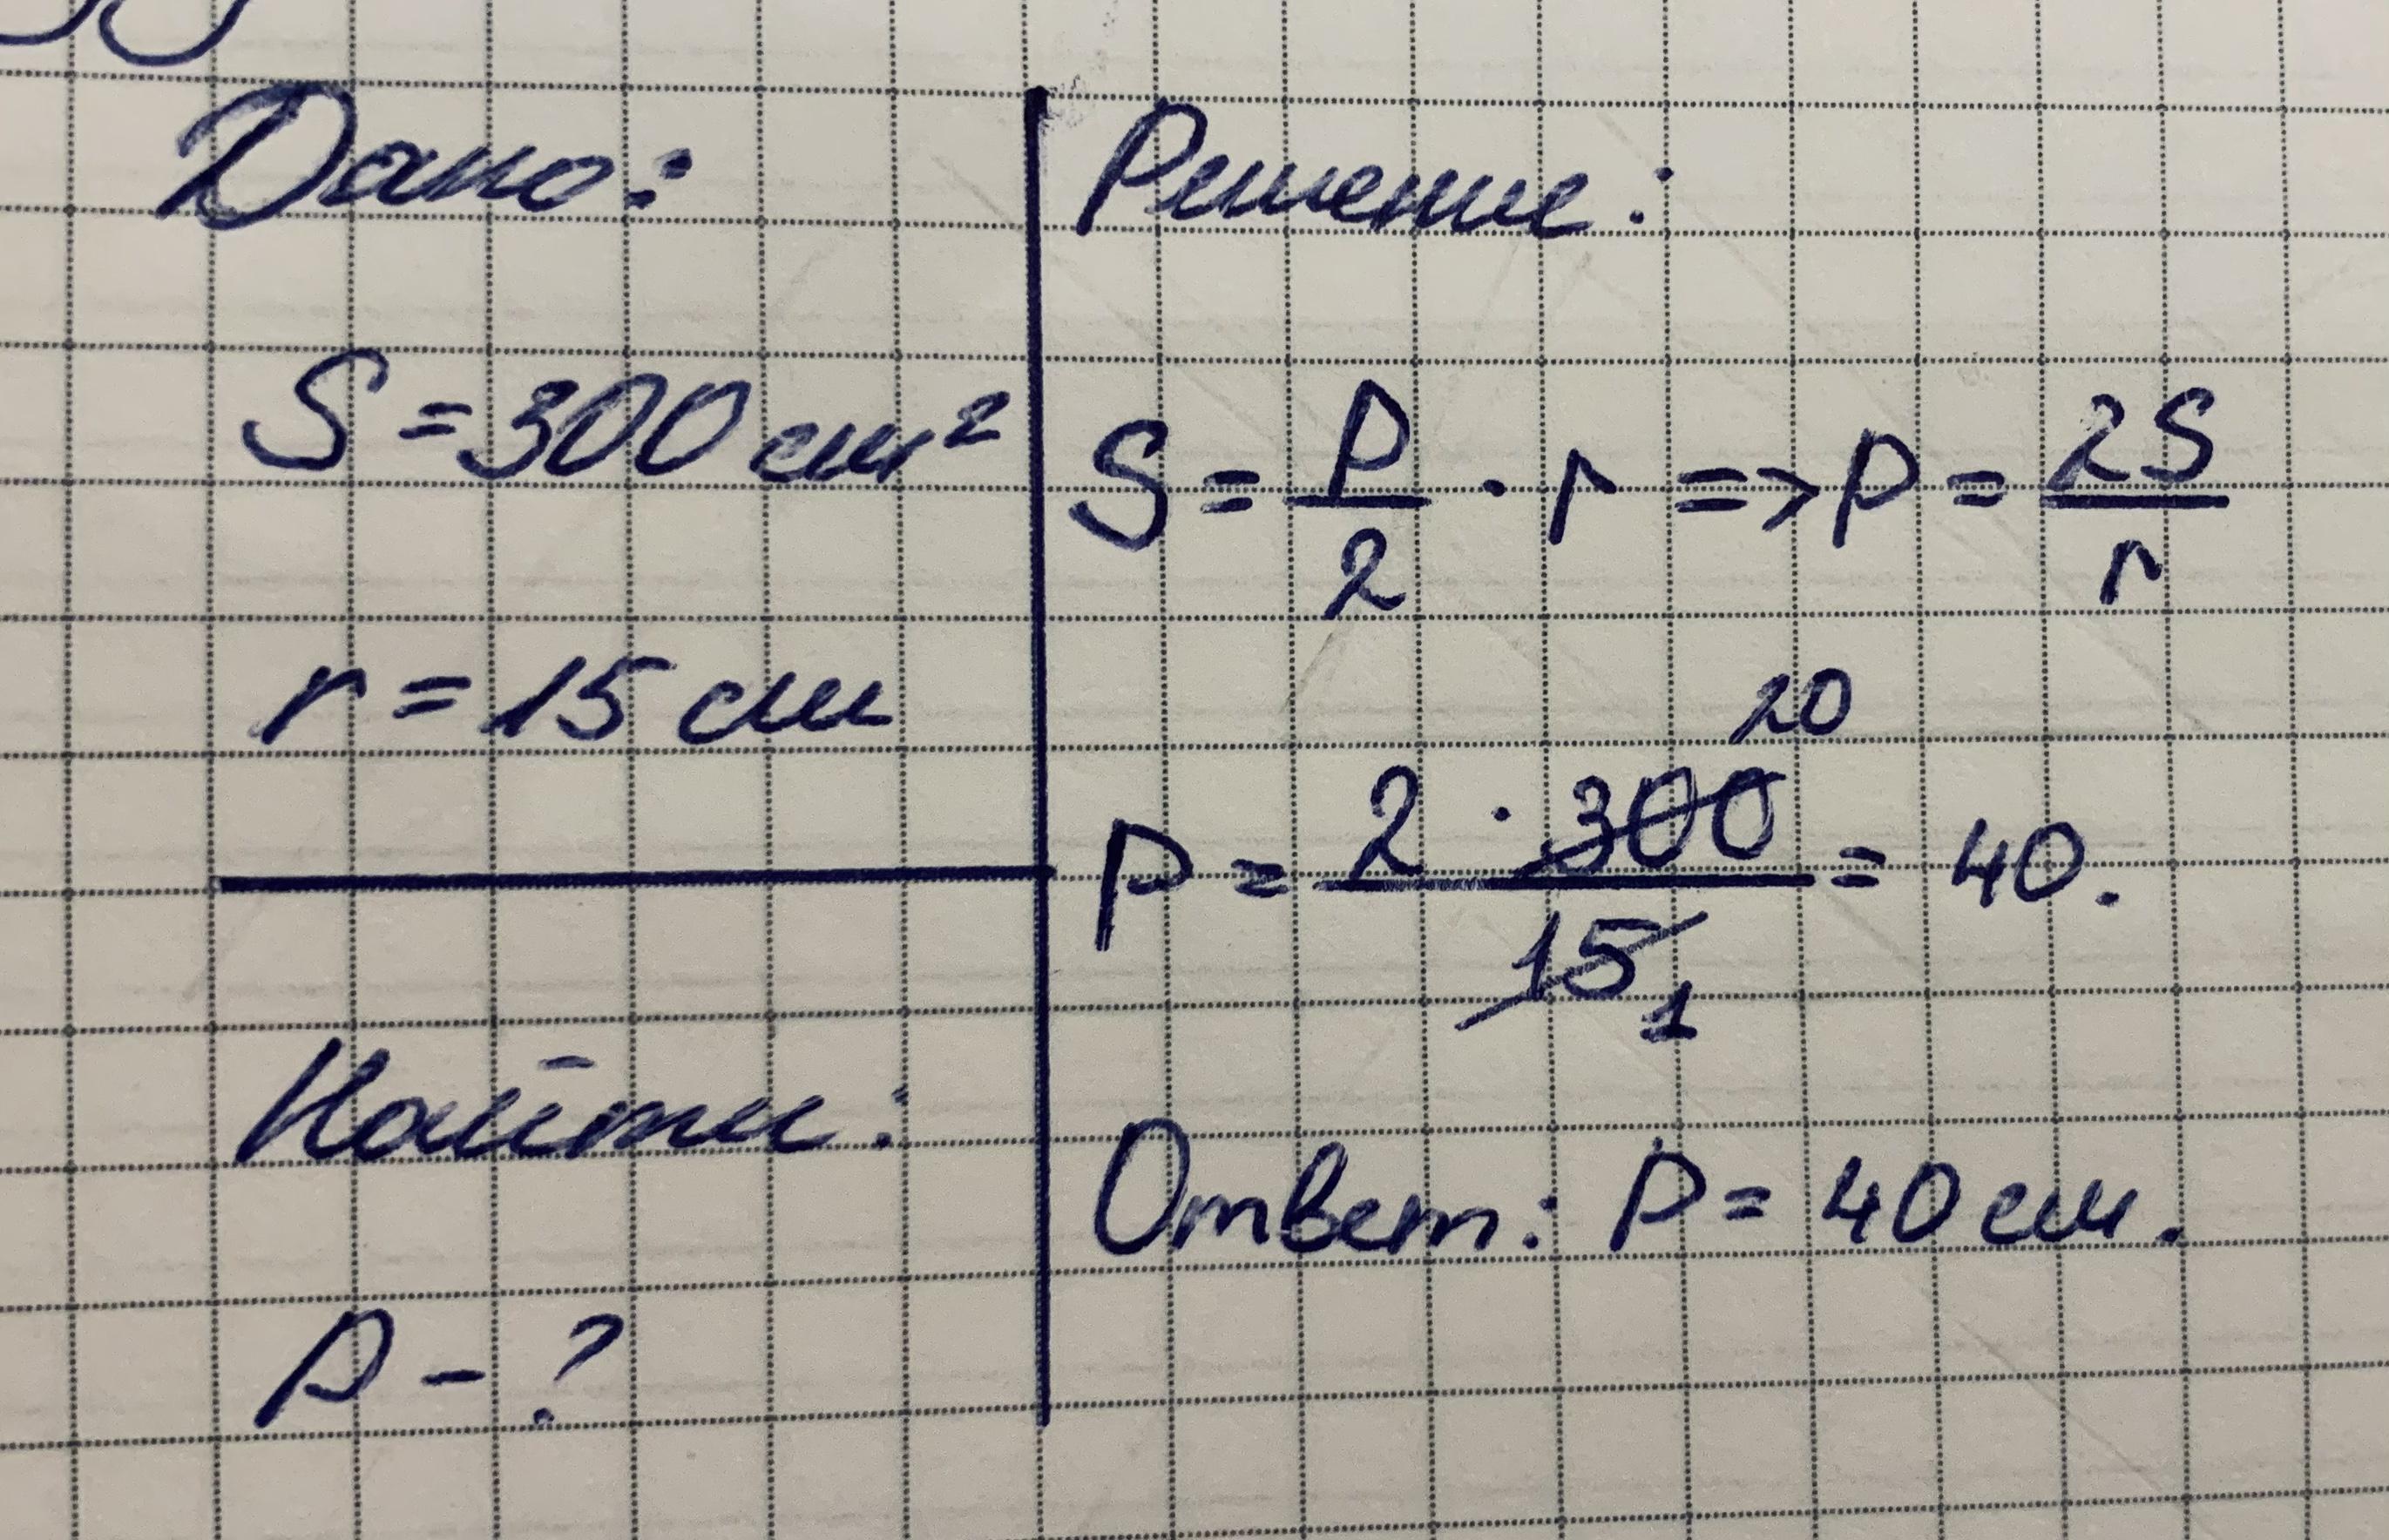 Дано:
S = 300 см²
r = 15 см
Найти:
P - ?
Решение:
S = P/2 · r => P = 2S/r
P = 2 · 300/15 = 40.
20
1
Ответ: P = 40 см.